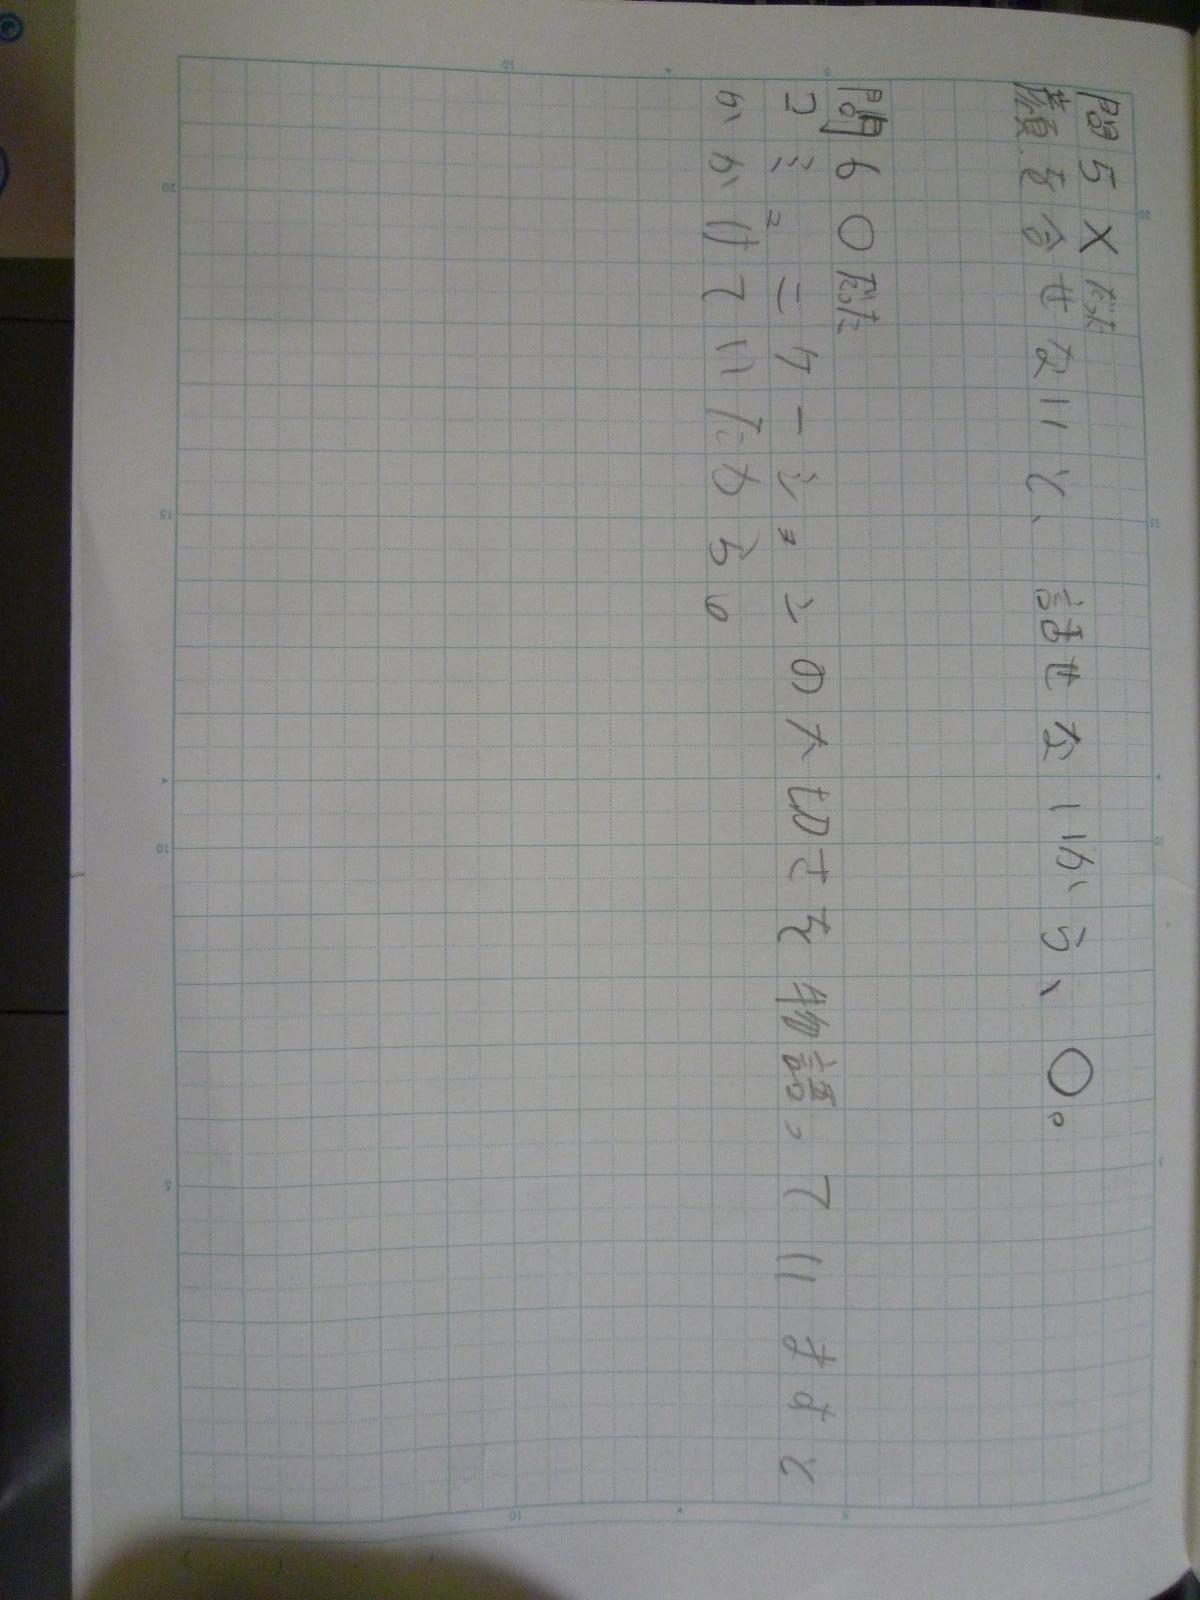 問5 ×
顔を合せないと、話せないから、〇。
問6 〇
コミュニケーションの大切さを物語っていますと
かかけていたから。